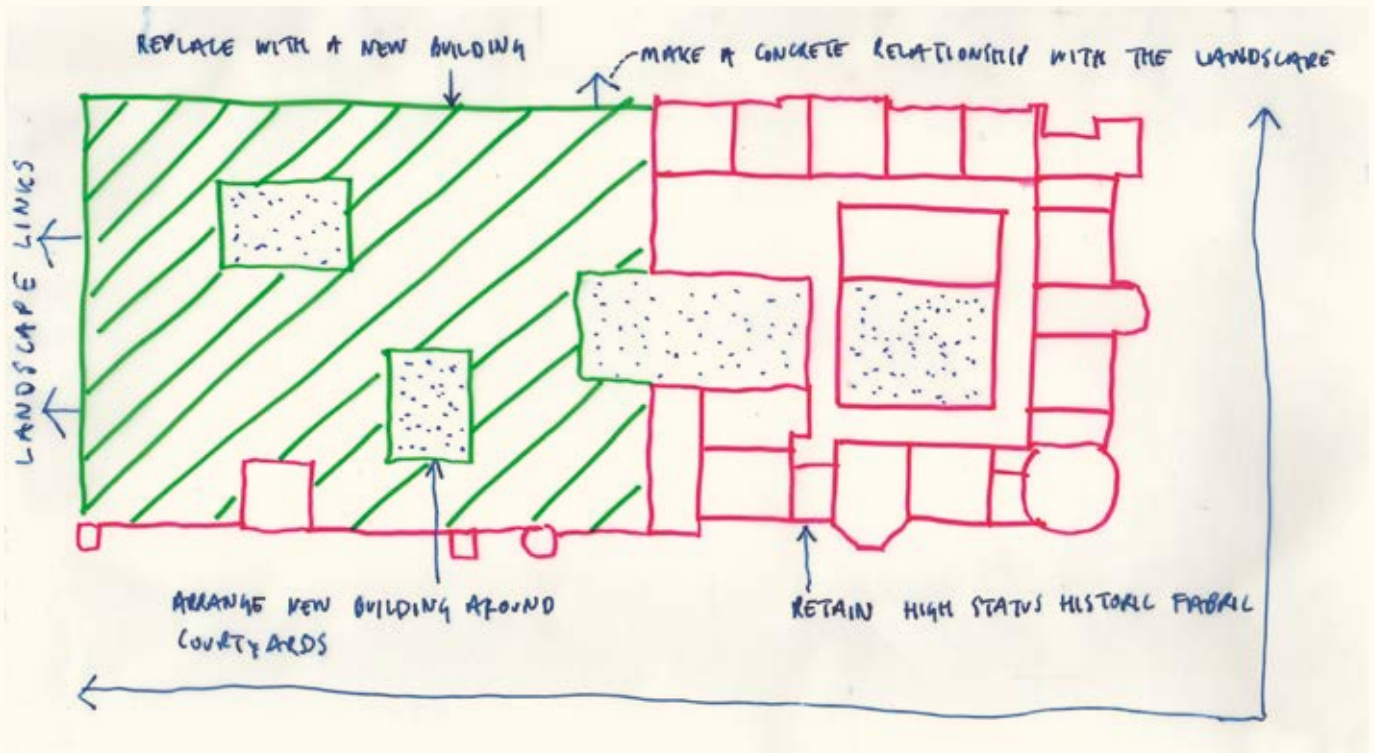 REPLACE WITH A NEW BUILDING
MAKE A CONCRETE RELATIONSHIP WITH THE LANDSCAPE
LANDSCAPE LINKS
ARRANGE NEW BUILDING AROUND
COURTYARDS
RETAIN HIGH STATUS HISTORIC FABRIC